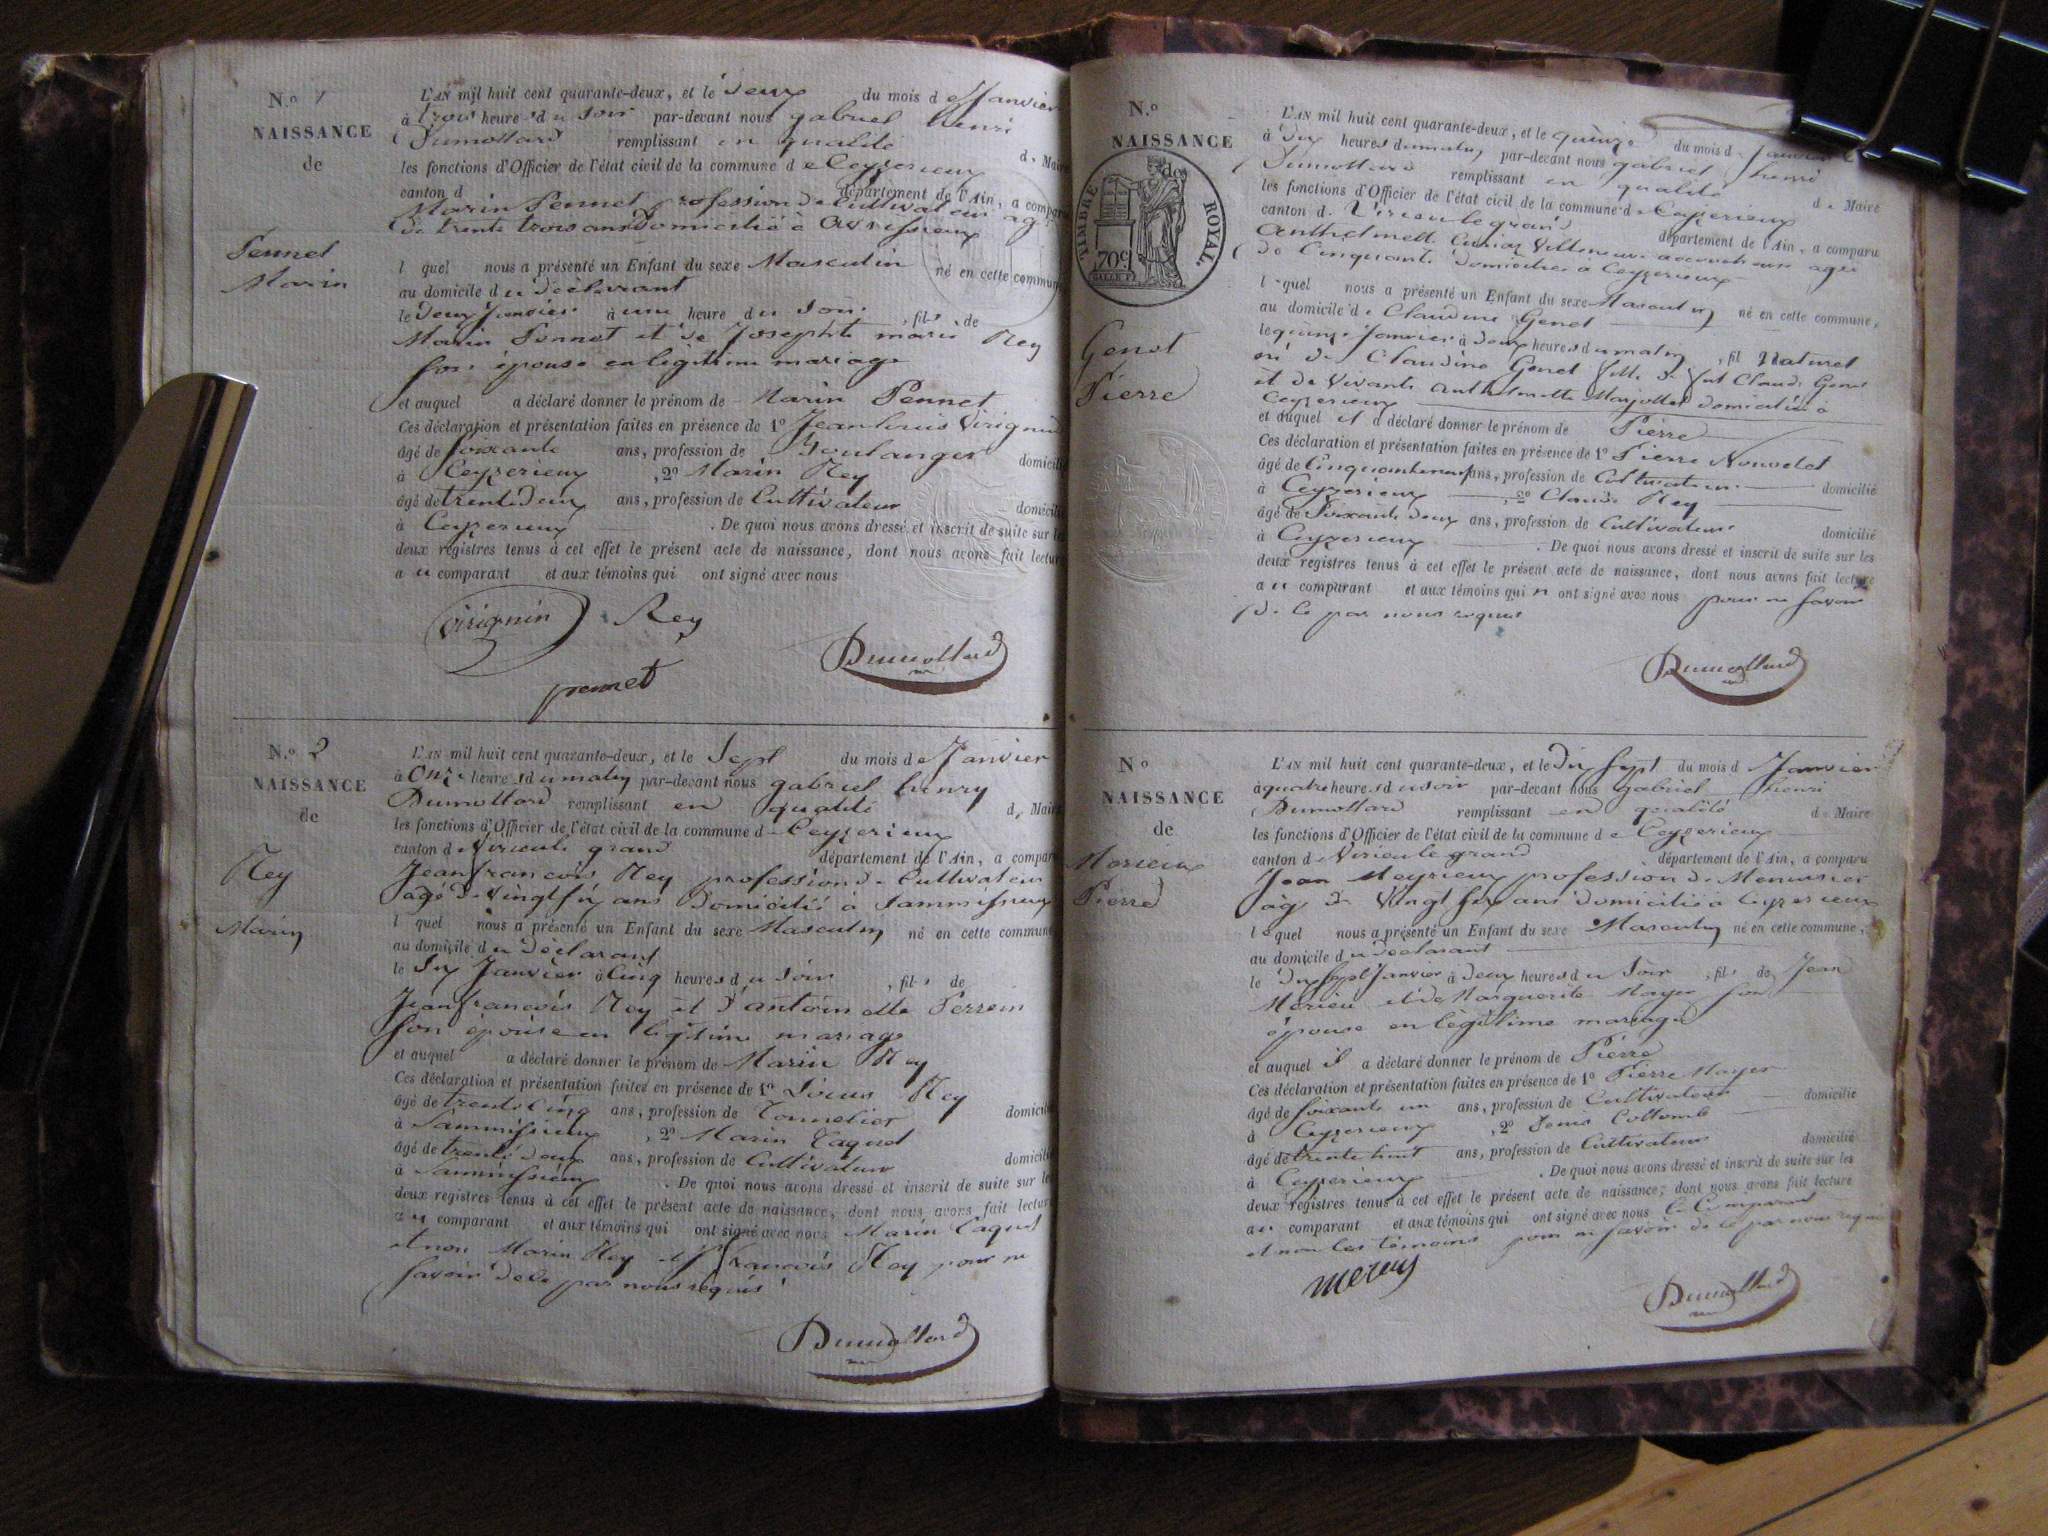 N.o 1
NAISSANCE
de
Pennet
Marin
L'AN mil huit cent quarante-deux, et le deux du mois de Janvier
à trois heures du soir par-devant nous gabriel henri
Dumollard remplissant en qualité de Maire
les fonctions d'Officier de l'état civil de la commune de Ceyzerieux
canton d département de l'Ain, a comparu
Marin Pennet profession de Cultivateur agé
de trente trois ans domicilié à avrissieux
l quel nous a présenté un Enfant du sexe Masculin né en cette commune
au domicile du déclarant
le deux Janvier à une heure du soir, fils de
Marin Pennet et de Josephte marie Rey
son épouse en légitime mariage
et auquel a déclaré donner le prénom de Marin Pennet
Ces déclaration et présentation faites en présence de 1º Jean louis Virignin
âgé de soixante ans, profession de Boulanger domicilié
à Ceyzerieux, 2º Marin Rey
âgé de trente deux ans, profession de Cultivateur domicilié
à Ceyzerieux. De quoi nous avons dressé et inscrit de suite sur les
deux registres tenus à cet effet le présent acte de naissance, dont nous avons fait lecture
au comparant et aux témoins qui ont signé avec nous
Virignin Rey
pennet Dumollard
N.o 2
NAISSANCE
de
Rey
Marin
L'AN mil huit cent quarante-deux, et le Sept du mois de Janvier
à Onze heures du matin par-devant nous gabriel henry
Dumollard remplissant en qualité de Maire
les fonctions d'Officier de l'état civil de la commune de Ceyzerieux
canton de Virieu le grand département de l'Ain, a comparu
Jean francois Rey profession de Cultivateur
agé de Vingt six ans domicilié a Sammissieux
l quel nous a présenté un Enfant du sexe Masculin né en cette commune
au domicile du déclarant
le Six Janvier à Cinq heures du soir, fils de
Jean francois Rey et d'antoinette Perrein
son épouse en légitime mariage
et auquel a déclaré donner le prénom de Marin Rey
Ces déclaration et présentation faites en présence de 1º Louis Rey
âgé de trente cinq ans, profession de Tonnelier domicilié
à Sammissieux, 2º Marin Caquet
âgé de trente deux ans, profession de Cultivateur domicilié
à Sammissieux. De quoi nous avons dressé et inscrit de suite sur les
deux registres tenus à cet effet le présent acte de naissance, dont nous avons fait lecture
au comparant et aux témoins qui ont signé avec nous Marin Caquet
et non Marin Rey et francois Rey pour ne
savoir de ce par nous requis
Dumollard
N.o
NAISSANCE
de
TIMBRE ROYAL
70c
Genet
Pierre
L'AN mil huit cent quarante-deux, et le quinze du mois de Janvier
à dix heures du matin par-devant nous gabriel henri
Dumollard remplissant en qualité de Maire
les fonctions d'Officier de l'état civil de la commune de Ceyzerieux
canton de Virieu le grand département de l'Ain, a comparu
Villeneuve accoucheuse agée
de Cinquante domiciliée a Ceyzerieux
l quel nous a présenté un Enfant du sexe Masculin né en cette commune,
au domicile de Claudine Genet
le quinze Janvier à deux heures du matin, fil Naturel
né de Claudine Genet fille de fut Claude Genet
et de Vivante anthelmette Marjollet domiciliée à
Ceyzerieux
et auquel il a déclaré donner le prénom de Pierre
Ces déclaration et présentation faites en présence de 1º Pierre Nouvelet
âgé de Cinquante neuf ans, profession de Cultivateur domicilié
à Ceyzerieux, 2º Claude Rey
âgé de Soixante deux ans, profession de Cultivateur domicilié
à Ceyzerieux. De quoi nous avons dressé et inscrit de suite sur les
deux registres tenus à cet effet le présent acte de naissance, dont nous avons fait lecture
au comparant et aux témoins qui n ont signé avec nous pour ne savoir
de ce par nous requis
Dumollard
Nº
NAISSANCE
de
Merieux
Pierre
L'AN mil huit cent quarante-deux, et le Dix Sept du mois d Janvier
à quatre heures du soir par-devant nous gabriel henri
Dumollard remplissant en qualité de Maire
les fonctions d'Officier de l'état civil de la commune de Ceyzerieux
canton de Virieu le grand département de l'Ain, a comparu
Jean Meyrieux profession de Menuisier
agé de Vingt six ans domicilié a Ceyzerieux
lequel nous a présenté un Enfant du sexe Masculin né en cette commune,
au domicile du déclarant
le Dix sept Janvier à deux heures du Soir, fils de Jean
Merieu et de Marguerite Mayer son
épouse en légitime mariage
et auquel il a déclaré donner le prénom de Pierre
Ces déclaration et présentation faites en présence de 1º Pierre Mayer
âgé de soixante un ans, profession de Cultivateur domicilié
à Ceyzerieux, 2º Denis Collomb
âgé de trente huit ans, profession de Cultivateur domicilié
à Ceyzerieux. De quoi nous avons dressé et inscrit de suite sur les
deux registres tenus à cet effet le présent acte de naissance, dont nous avons fait lecture
au comparant et aux témoins qui ont signé avec nous le Comparant
et non les témoins pour ne savoir de ce par nous requis
Dumollard